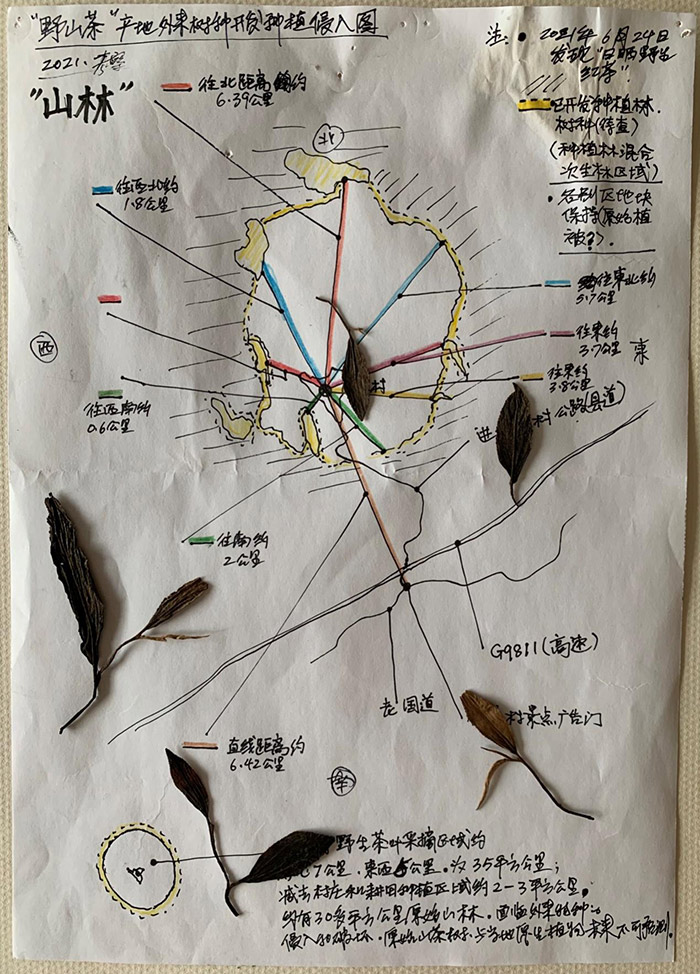 "野山茶"产地外来树种开发种植侵入图
2021.
"山林"
注: ● 2021年6月24日
发现"日晒野生
红茶".
已开发种植林.
树种(待查)
(种植林混合
次生林区域)
• 个别区地块
保持(原始植
被?).
往北距离约
6.39公里
北
往西北约
1.8公里
往東北约
5.7公里
往東约
3.7公里
東
西
往東约
3.8公里
村
往西南约
0.6公里
进 村公路(县道)
往南约
2公里
G9811(高速)
老国道
村景点广告门
直线距离约
6.42公里
南
野生茶叶采摘区域约
7公里.東西5公里.约35平方公里;
减去村庄和耕田种植区域约2-3平方公里.
约有30多平方公里原始山林.面临外来物种
侵入和破坏.原始山茶树与当地原生植物 不可预测.